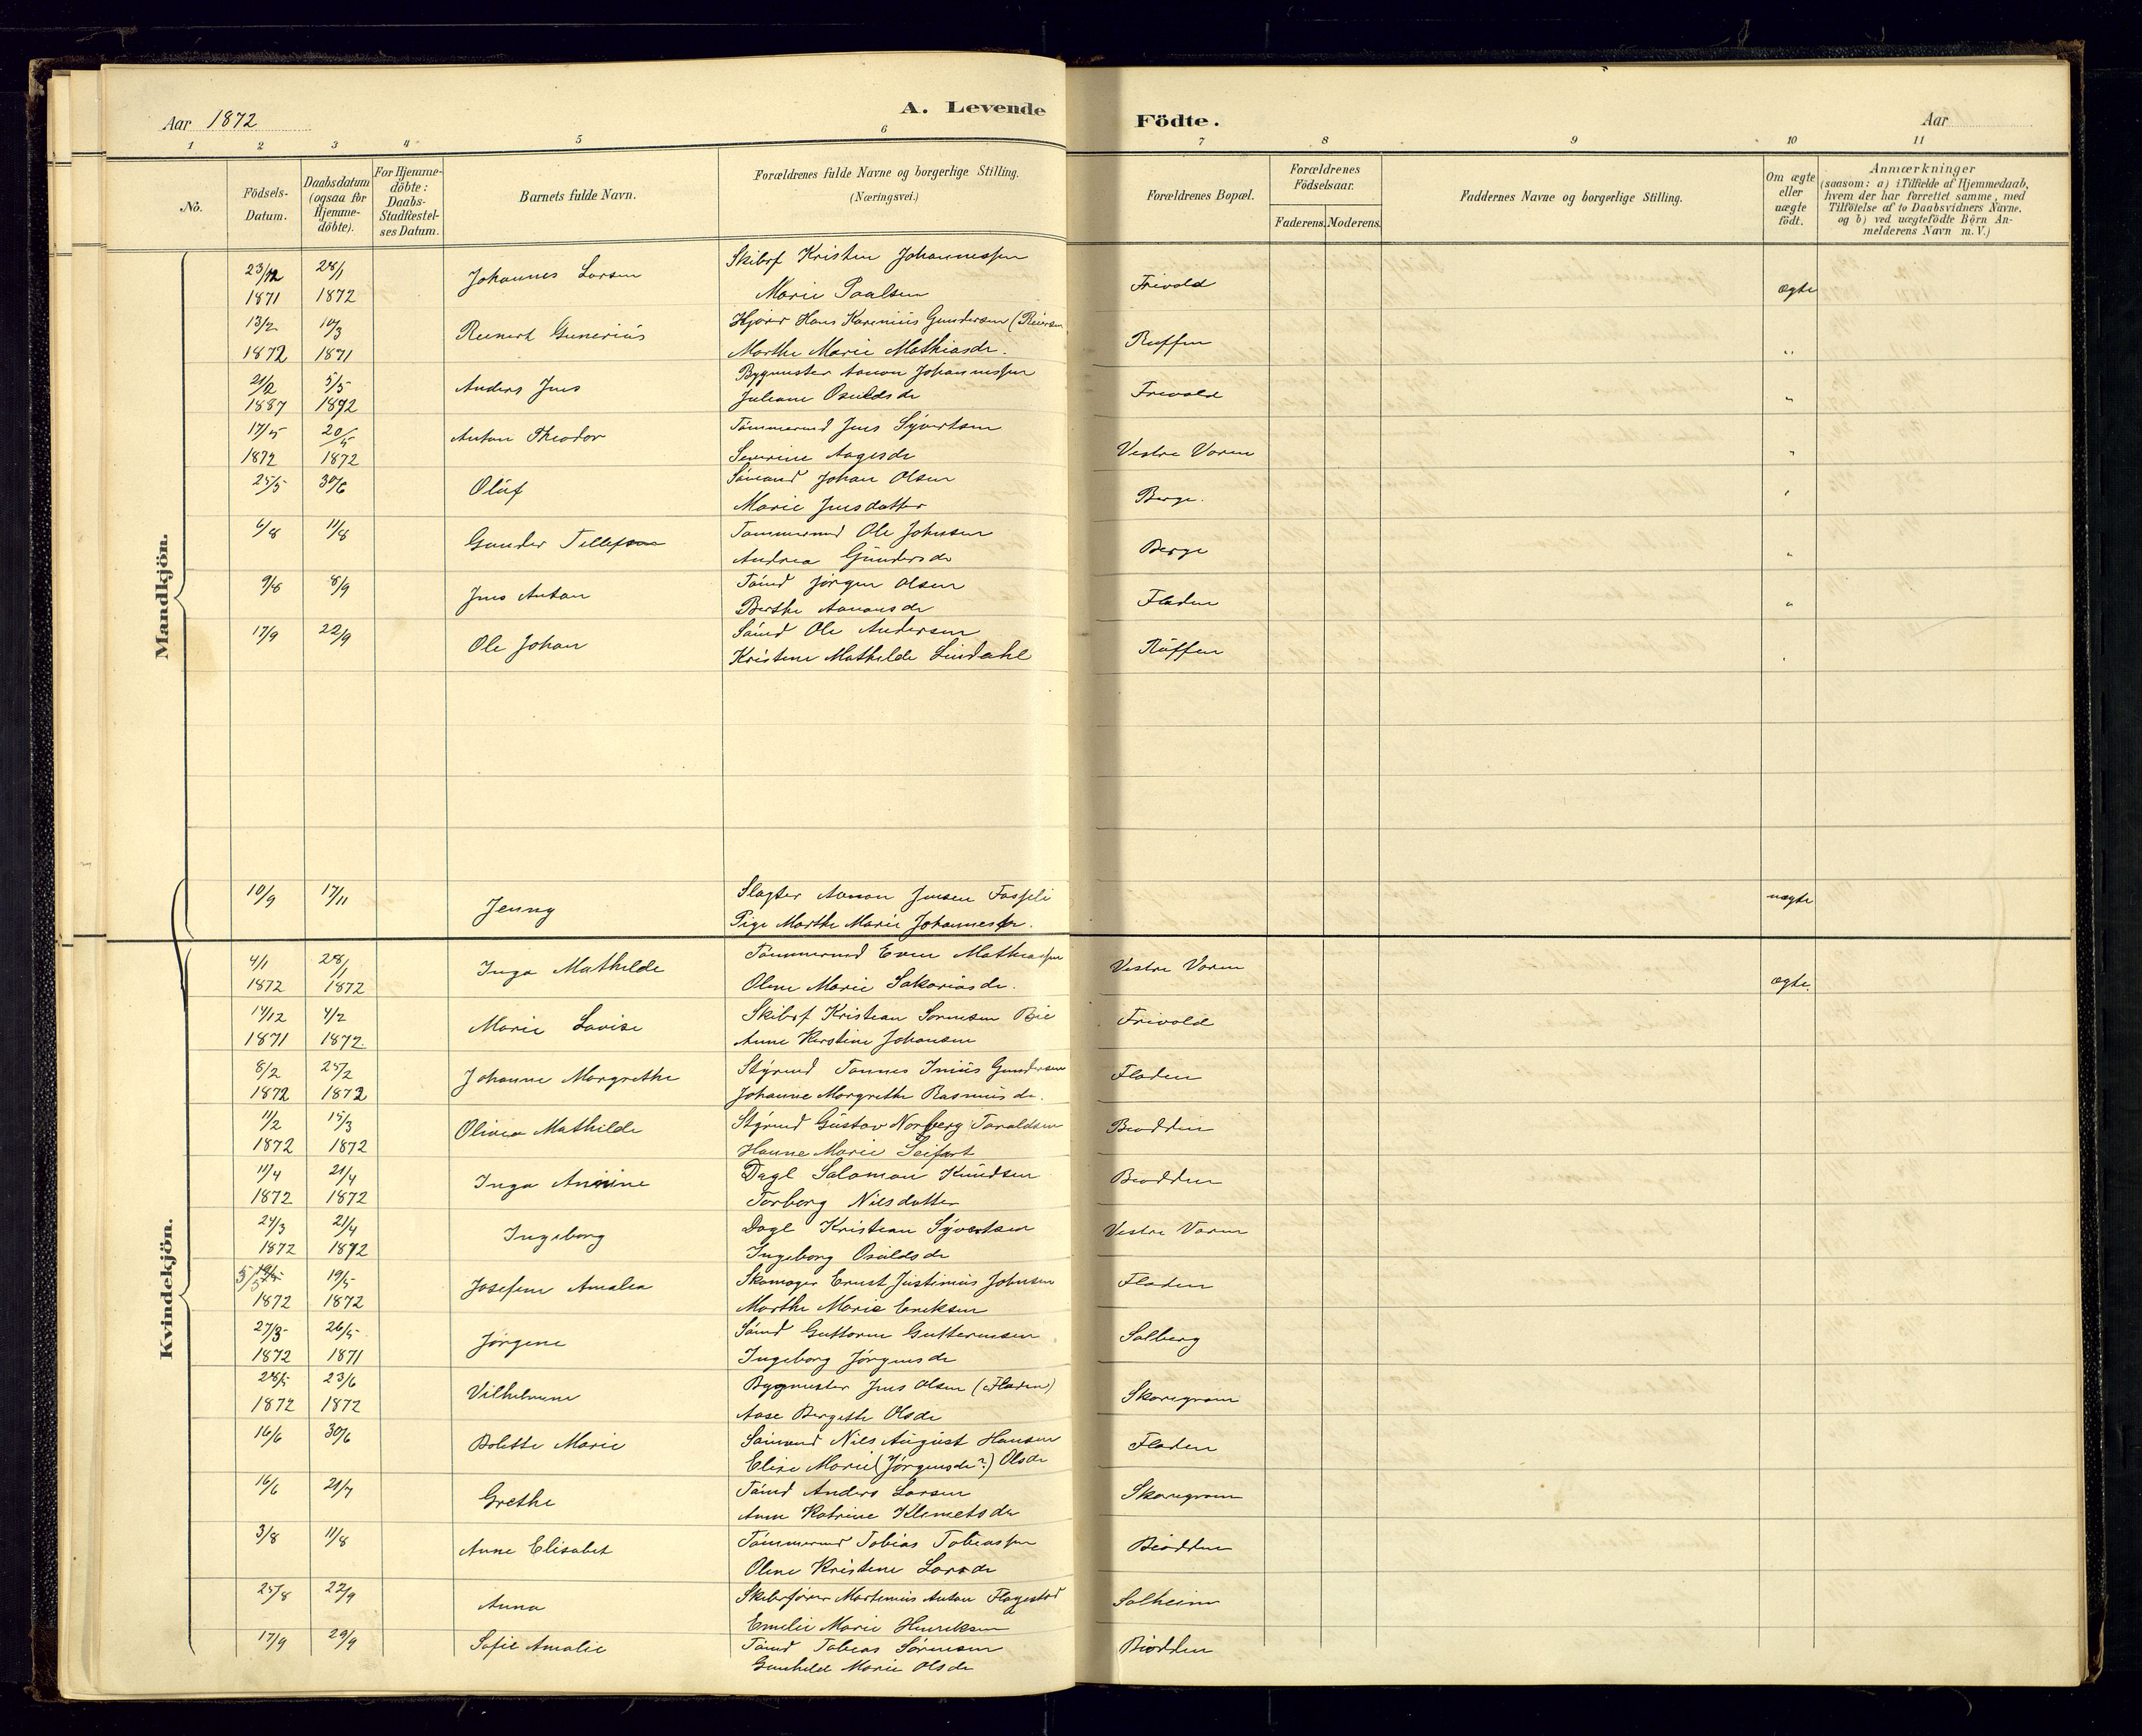 Aar 1872
A. Levende
Födte.
Aar
1 2 3 4 5 6 7 8 9 10 11
No.
Födsels-Datum.
Daabsdatum (ogsaa for Hjemme-döbte).
For Hjemme-döbte: Daabs-Stadfæstel-ses Datum.
Barnets fulde Navn.
Forældrenes fulde Navne og borgerlige Stilling.
(Næringsvei.)
Forældrenes Bopæl.
Forældrenes Födselsaar.
Faderens. Moderens.
Faddernes Navne og borgerlige Stilling.
Om ægte eller uægte födt.
Anmærkninger
(saasom: a) i Tilfælde af Hjemmedaab,
hvem der har forrettet samme, med
Tilföielse af to Daabsvidners Navne,
og b) ved uægtefödte Börn An-
melderens Navn m. V.)
Mandkjön.
23/12 28/1 Skibsf Kristen Johannessen
1871 1872 Johannes Larsen Marie Paalsen Frivold ægte
13/2 10/3 Hans Karenius Gundersen (Reiersen
1872 1871 Reinert Gunerius Marthe Marie Mathiasdr. Røffen "
21/12 5/5 Anders Jens Bygmester Aanon Johannessen
1887 1872 Juliane Osuldsdr Frivold "
17/5 20/5 Anton Theodor Tømmermd Jens Syvertsen
1872 1872 Severine Aagesdr Vestre Voren "
25/5 30/6 Oluf Sømand Johan Olsen
Marie Jensdatter Berge "
6/8 11/8 Gunder Tellefsen Tømmermd Ole Johnsen
Andrea Gundersdr Berge "
9/8 8/9 Jens Anton Tømd Jørgen Olsen
Berthe Aanonsdr Fladen "
17/9 22/9 Ole Johan Sømd Ole Andersen
Kristene Mathilde Lindahl Røffen "
10/9 17/11 Jenny Slagter Aanon Jensen Fosseli uægte
Pige Marthe Marie Johannesdr.
Kvindekjön.
4/1 28/1 Inga Mathilde Tømmermd Even Mathiassen Vestre Voren
1872 1872 Olene Marie Sakariasdr. ægte.
14/12 4/2 Marie Lovise Skibsf Kristian Sørensen Bie Frivold
1871 1872 Anne Kirstine Johansen
8/2 25/2 Johanne Margrethe Styrmd Tønnes Inius Gundersen Fladen
1872 1872 Johanne Margrethe Rasmusdr.
11/2 15/3 Olivia Mathilde Styrmd Gustav Norberg Taraldsen Brodden
1872 1872 Hanne Marie Seifart
11/4 21/4 Inga Annine Dagl Salomon Knudsen Brodden
1872 1872 Torborg Nilsdatter
24/3 21/4 Ingeborg Dagl Kristian Syvertsen Vestre Voren
1872 1872 Ingeborg Osuldsdr
5/5 19/5 Josefine Amalia Skomager Ernst Justinius Johnsen Fladen
1872 1872 Marthe Marie Eriksen
27/3 26/5 Jørgene Sømd Guttorm Guttormsen Solberg
1872 1871 Ingeborg Jørgensdr
28/5 23/6 Vilhelmine Bygmester Jens Olsen (Fladen) Skaregrøm
1872 1872 Aase Bergethe Olsdr
16/6 30/6 Bolette Marie Sømand Nils August Hansen Fladen
Elise Marie (Jørgensdr?) Olsdr
16/6 21/7 Grethe Tømd Anders Larsen Skaregrøm
Anne Katrine Klemetsdr
3/8 11/8 Anne Elisabet Tømmermd Tobias Tobiassen Brødden
Olene Kristene Larsdr
25/8 22/9 Anna Skibsfører Martinius Anton Flagestad Solheim
Emelie Marie Henriksen
17/9 29/9 Sofie Amalie Tømd Tobias Sørensen Brødden
Gunhild Marie Olsdr